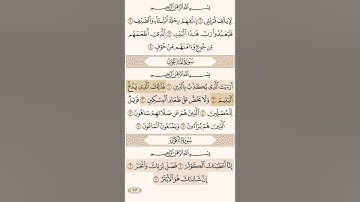 بِسْمِ ٱللَّهِ ٱلرَّحْمَٰنِ ٱلرَّحِيمِ
لِإِيلَٰفِ قُرَيْشٍ ١ إِۦلَٰفِهِمْ رِحْلَةَ ٱلشِّتَآءِ وَٱلصَّيْفِ ٢
فَلْيَعْبُدُوا۟ رَبَّ هَٰذَا ٱلْبَيْتِ ٣ ٱلَّذِىٓ أَطْعَمَهُم
مِّن جُوعٍ وَءَامَنَهُم مِّنْ خَوْفٍۭ ٤
سُورَةُ المَاعُونِ
بِسْمِ ٱللَّهِ ٱلرَّحْمَٰنِ ٱلرَّحِيمِ
أَرَءَيْتَ ٱلَّذِى يُكَذِّبُ بِٱلدِّينِ ١ فَذَٰلِكَ ٱلَّذِى يَدُعُّ
ٱلْيَتِيمَ ٢ وَلَا يَحُضُّ عَلَىٰ طَعَامِ ٱلْمِسْكِينِ ٣ فَوَيْلٌ
لِّلْمُصَلِّينَ ٤ ٱلَّذِينَ هُمْ عَن صَلَاتِهِمْ سَاهُونَ ٥
ٱلَّذِينَ هُمْ يُرَآءُونَ ٦ وَيَمْنَعُونَ ٱلْمَاعُونَ ٧
سُورَةُ الكَوْثَرِ
بِسْمِ ٱللَّهِ ٱلرَّحْمَٰنِ ٱلرَّحِيمِ
إِنَّآ أَعْطَيْنَٰكَ ٱلْكَوْثَرَ ١ فَصَلِّ لِرَبِّكَ وَٱنْحَرْ ٢
إِنَّ شَانِئَكَ هُوَ ٱلْأَبْتَرُ ٣
٦٠٢